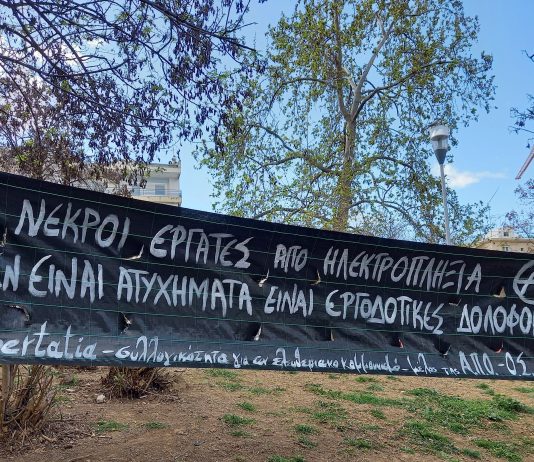 ΝΕΚΡΟΙ ΕΡΓΑΤΕΣ ΑΠΟ ΗΛΕΚΤΡΟΠΛΗΞΙΑ
ΕΝ ΕΙΝΑΙ ΑΤΥΧΗΜΑΤΑ ΕΙΝΑΙ ΕΡΓΟΔΟΤΙΚΕΣ ΔΟΛΟΦΟ
bertatia - συλλογικότητα για τον ελευθεριακό κομμουνισμό - μέλος της ΑΠΟ-ΟΣ